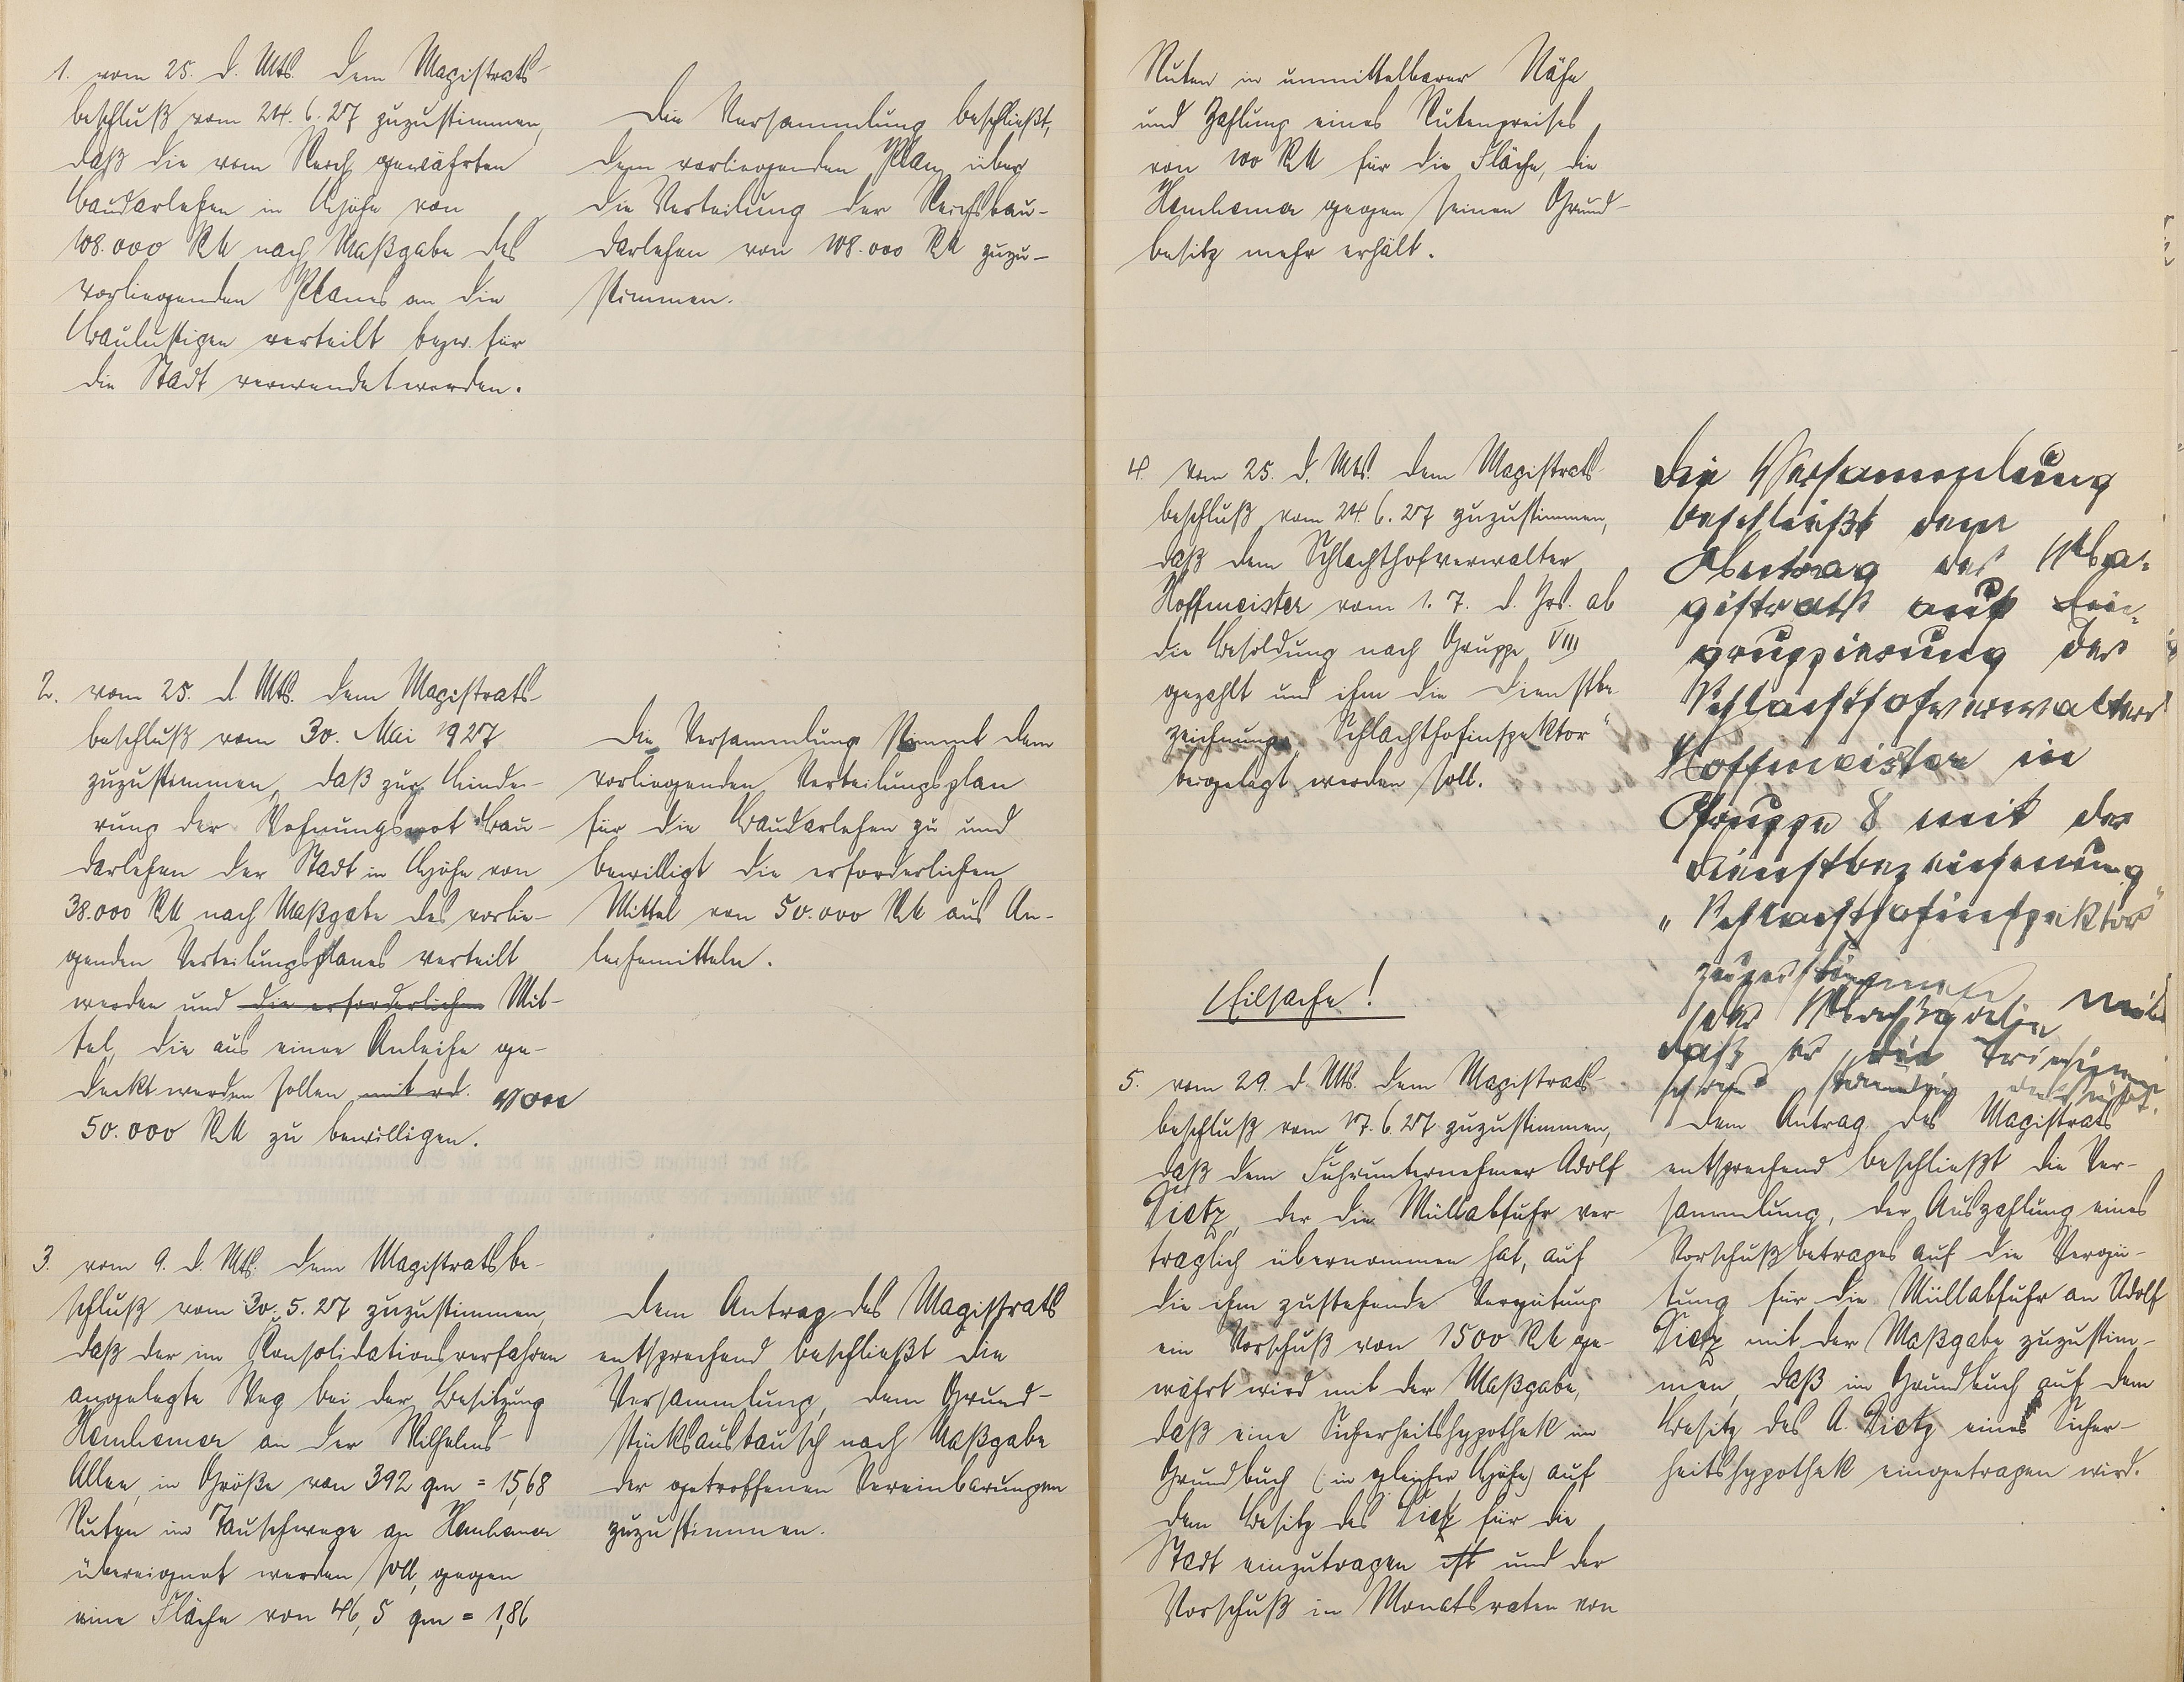 1. vom 25. d. Mts. dem Magistrats-
beschluß vom 24. 6. 27 zuzustimmen,
daß die vom Reich gewährten
Baudarlehen in Höhe von
108.000 RM nach Maßgabe des
vorliegenden Planes an die
Baulustigen verteilt bezw. für
die Stadt verwendet werden.
Die Versammlung beschließt,
dem vorliegenden Plan über
die Verteilung der Reichsbau-
darlehen von 108.000 RM zuzu-
stimmen.
2. vom 25. d. Mts. dem Magistrats-
beschluß vom 30. Mai 1927
zuzustimmen, daß zur Linde-
rung der Wohnungsnot Bau-
darlehen der Stadt in Höhe von
38.000 RM nach Maßgabe des vorlie-
genden Verteilungsplanes verteilt
werden und die erforderlichen Mit-
tel, die aus einer Anleihe ge-
deckt werden sollen mit rd. von
50.000 RM zu bewilligen.
Die Versammlung stimmt dem
vorliegenden Verteilungsplan
für die Baudarlehen zu und
bewilligt die erforderlichen
Mittel von 50.000 RM aus An-
leihemitteln.
3. vom 9. d. Mts. dem Magistratsbe-
schluß vom 30. 5. 27 zuzustimmen,
daß der im Konsolidationsverfahren
angelegte Weg bei der Besitzung
an der Wilhelms-
Allee, in Größe von 392 qm = 15,68
Ruten im Tauschwege an
übereignet werden soll, gegen
eine Fläche von 46,5 qm = 1,86
Dem Antrag des Magistrats
entsprechend beschließt die
Versammlung, dem Grund-
stücksaustausch nach Maßgabe
der getroffenen Vereinbarungen
zuzustimmen.
Ruten in unmittelbarer Nähe
und Zahlung eines Rutenpreises
von 100 RM für die Fläche, die
gegen seinen Grund-
besitz mehr erhält.
4. vom 25. d. Mts. dem Magistrats-
beschluß vom 24. 6. 27 zuzustimmen,
daß dem Schlachthofverwalter
Hoffmeister vom 1. 7. d. Jrs. ab
die Besoldung nach Gruppe VIII
gezahlt und ihm die Dienstbe-
zeichnung „Schlachthofinspektor"
beigelegt werden soll.
Die Versammlung
beschließt dem
Antrag des Ma-
gistrats auf Ein-
gruppierung des
Schlachthofverwalters
Hoffmeister in
Gruppe 8 mit der
Dienstbezeichnung
„Schlachthofinspektor"
zuzustimmen
daß er die Trichinen-
schau ständig
Eilsache!
5. vom 29. d. Mts. dem Magistrats-
beschluß vom 17. 6. 27 zuzustimmen,
daß dem Fuhrunternehmer Adolf
Dietz, der die Müllabfuhr ver-
traglich übernommen hat, auf
die ihm zustehende Vergütung
ein Vorschuß von 1500 RM ge-
währt wird mit der Maßgabe,
daß eine Sicherheitshypothek im
Grundbuch (in gleicher Höhe) auf
dem Besitz des Dietz für die
Stadt einzutragen ist und der
Vorschuß in Monatsraten von
Dem Antrag des Magistrats
entsprechend beschließt die Ver-
sammlung, der Auszahlung eines
Vorschußbetrages auf die Vergü-
tung für die Müllabfuhr an Adolf
Dietz mit der Maßgabe zuzustim-
men, daß im Grundbuch auf dem
Besitz des A. Dietz eines Sicher-
heitshypothek eingetragen wird.